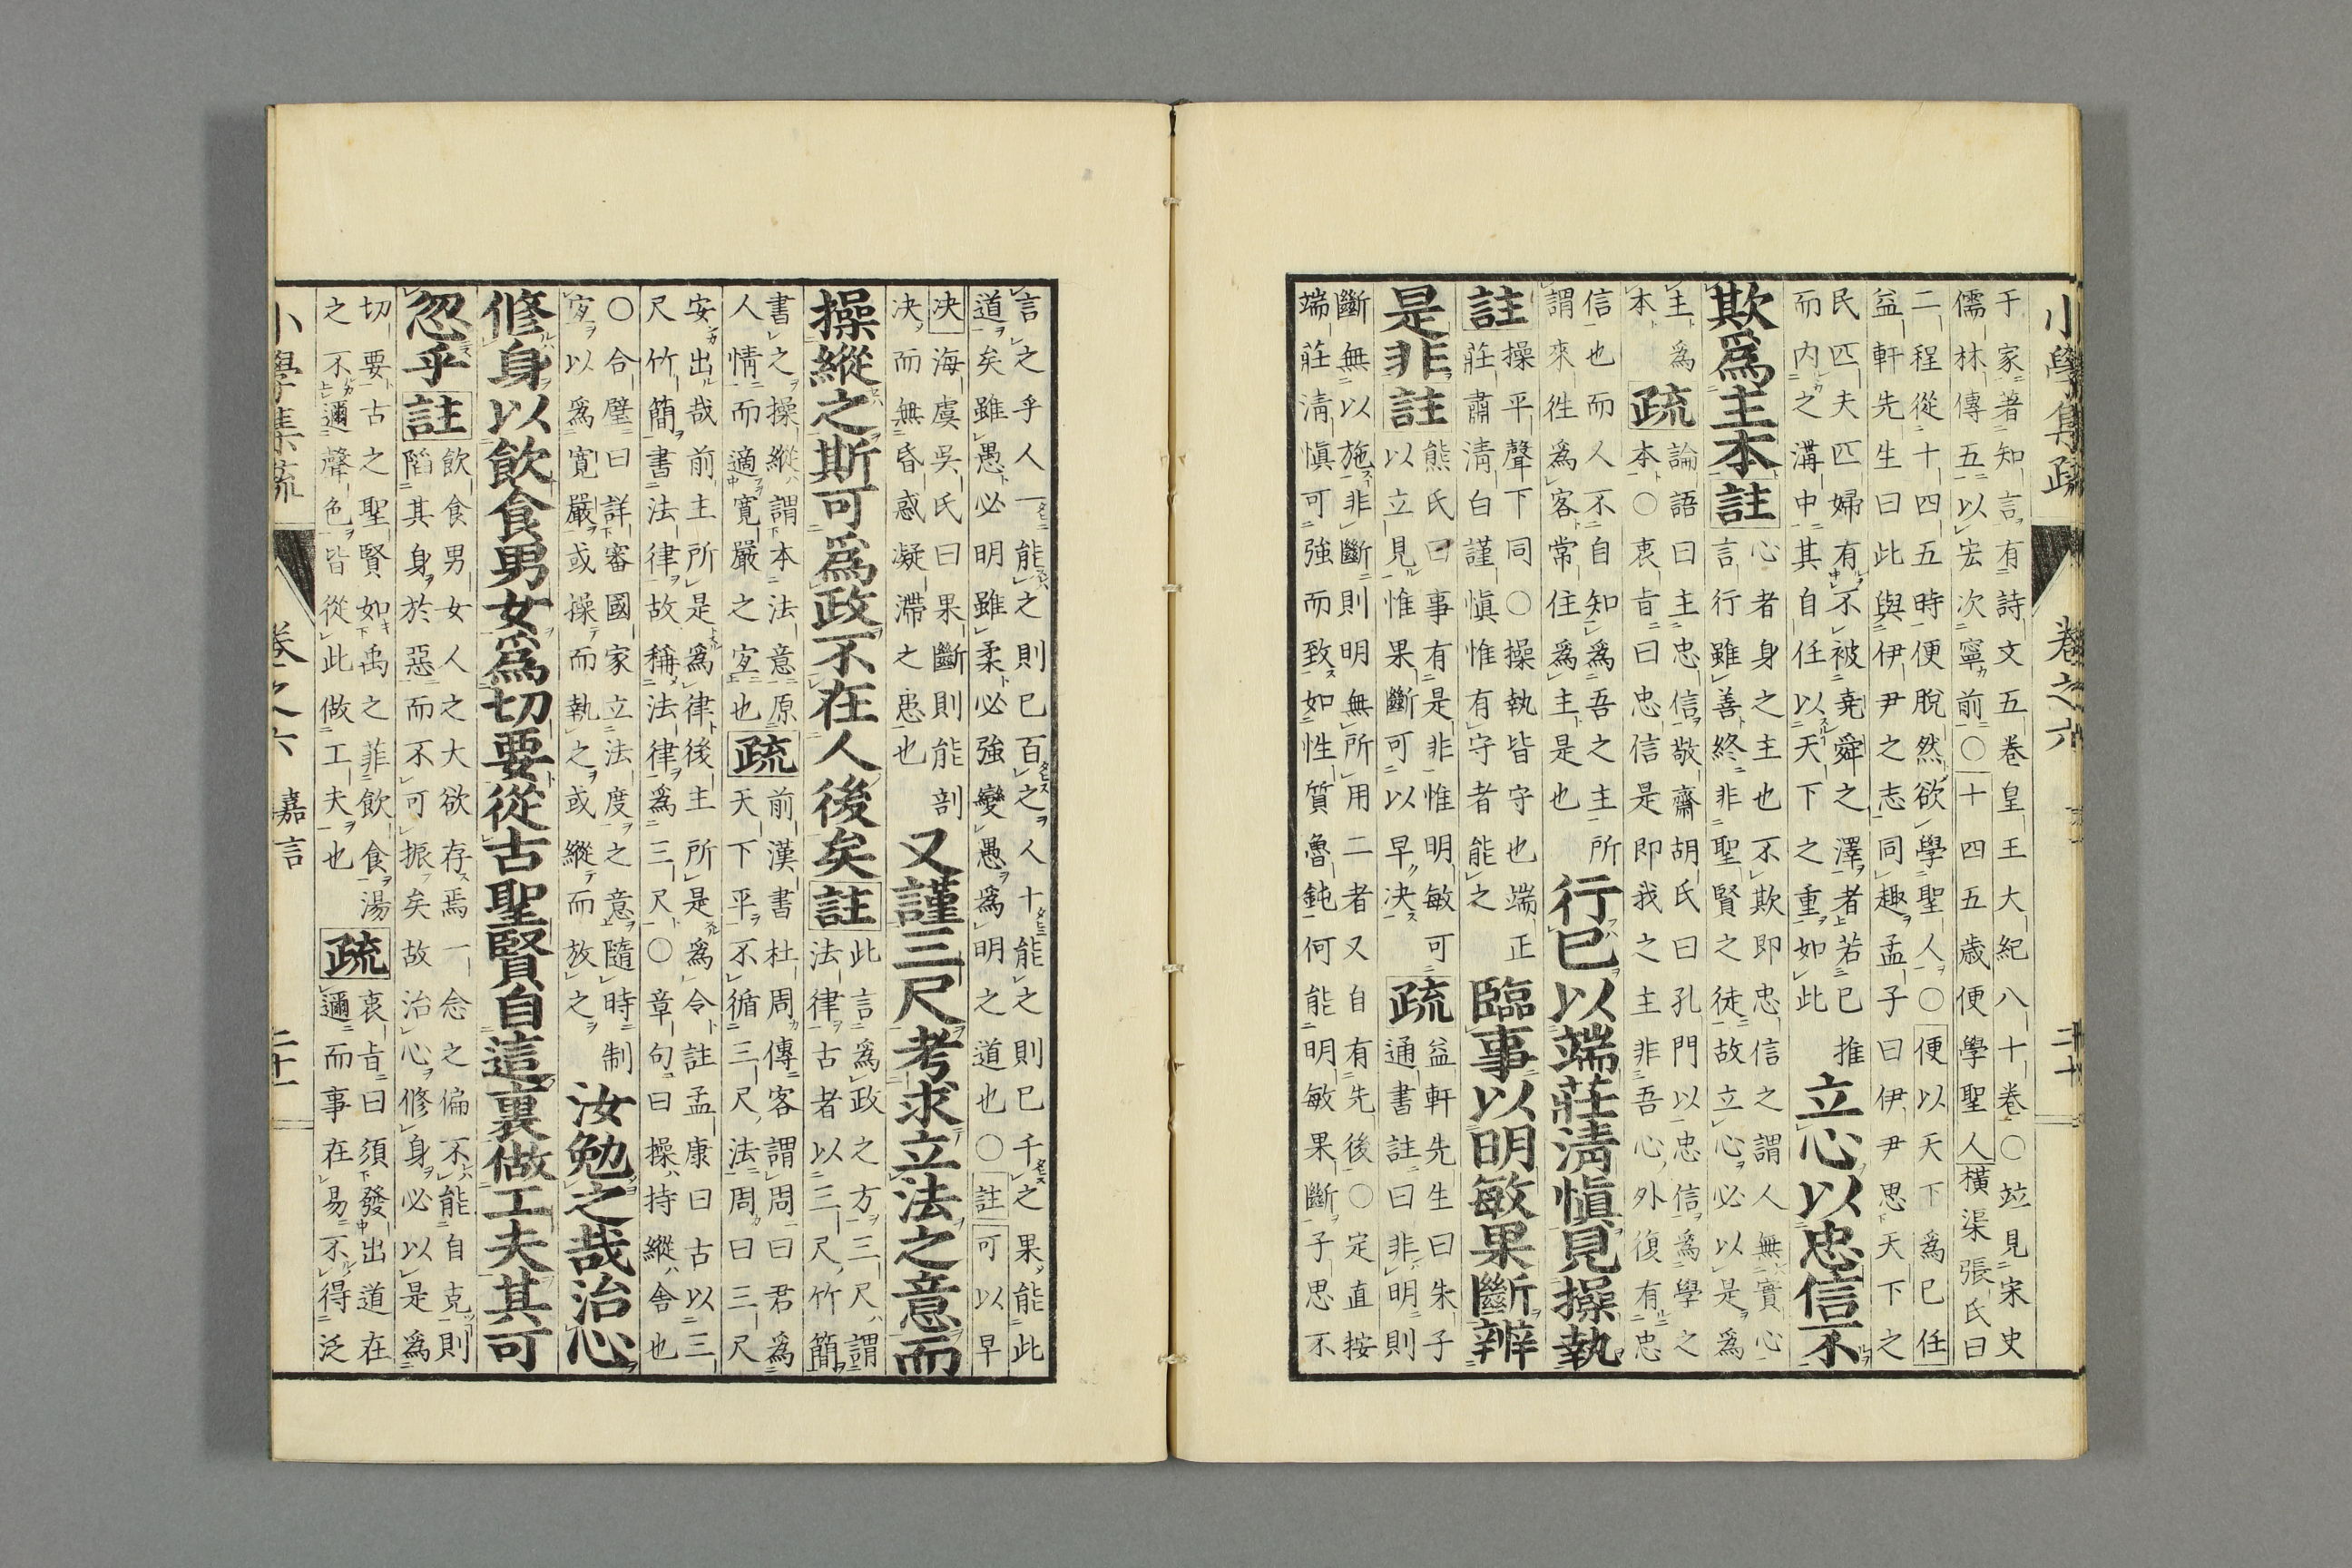 小學集疏
卷之六
二十
于家著知言有詩文五卷皇王大紀八十卷〇竝見宋史
儒林傳五以宏次寧前〇十四五歲便學聖人橫渠張氏曰
二程從十四五時便脫然欲學聖人〇便以天下爲己任
益軒先生曰此與伊尹之志同趣孟子曰伊尹思天下之
民匹夫匹婦有不被堯舜之澤者若己推
而内之溝中其自任以天下之重如此
立心以忠信不
欺爲主本註
心者身之主也不欺即忠信之謂人無實心
言行雖善終非聖賢之徒故立心必以是爲
主爲
本
疏
論語曰主忠信敬齋胡氏曰孔門以忠信爲學之
本〇衷旨曰忠信是即我之主非吾心外復有忠
信也而人不自知爲吾之主所
謂來徃爲客常住爲主是也
行已以端莊淸愼見操執
註
操平聲下同〇操執皆守也端正
莊肅淸白謹愼惟有守者能之
臨事以明敏果斷辨
是非註
熊氏曰事有是非惟明敏可
以立見惟果斷可以早決
疏
益軒先生曰朱子
通書註曰非明則
斷無以施非斷則明無所用二者又自有先後〇定直按
端莊淸愼可強而致如性質魯鈍何能明敏果斷子思不
言之乎人一能之則己百之人十能之則己千之果能此
道矣雖愚必明雖柔必強變愚爲明之道也〇註可以早
决海虞吳氏曰果斷則能剖
决而無昏惑凝滯之患也
又謹三尺考求立法之意而
操縱之斯可爲政不在人後矣註
此言爲政之方三尺謂
法律古者以三尺竹簡
書之操縱謂本法意原
人情而適寬嚴之宐也
疏
前漢書杜周傳客謂周曰君爲
天下平不循三尺法周曰三尺
安出哉前主所是爲律後主所是爲令註孟康曰古以三
尺竹簡書法律故稱法律爲三尺〇章句曰操持縱舍也
〇合璧曰詳審國家立法度之意隨時制
宐以爲寬嚴或操而執之或縱而放之
汝勉之哉治心
修身以飮食男女爲切要從古聖賢自這裏做工夫其可
忽乎註
飮食男女人之大欲存焉一念之偏不能自克則
陷其身於惡而不可振矣故治心修身必以是爲
切要古之聖賢如禹之菲飮食湯
之不邇聲色皆從此做工夫也
疏
衷旨曰須發出道在
邇而事在易不得泛
小學集疏
卷之六
嘉言
二十一